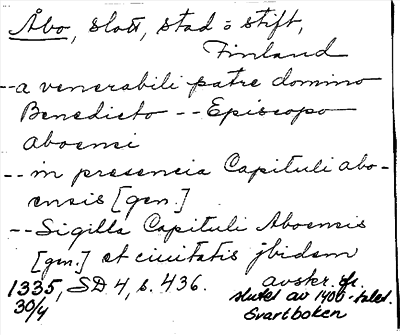 Åbo, slott, stad o stift,
Finland
--a venerabili patre domino
Benedicto -- Episcopo
aboensi
-- in presencia Capituli abo-
ensis [gen.]
--Sigilla Capituli Aboensis
[gen.] et ciuitatis jbidem
1335, SD 4, s. 436. avskr. fr.
30/4 slutet av 1400-talet.
Svartboken